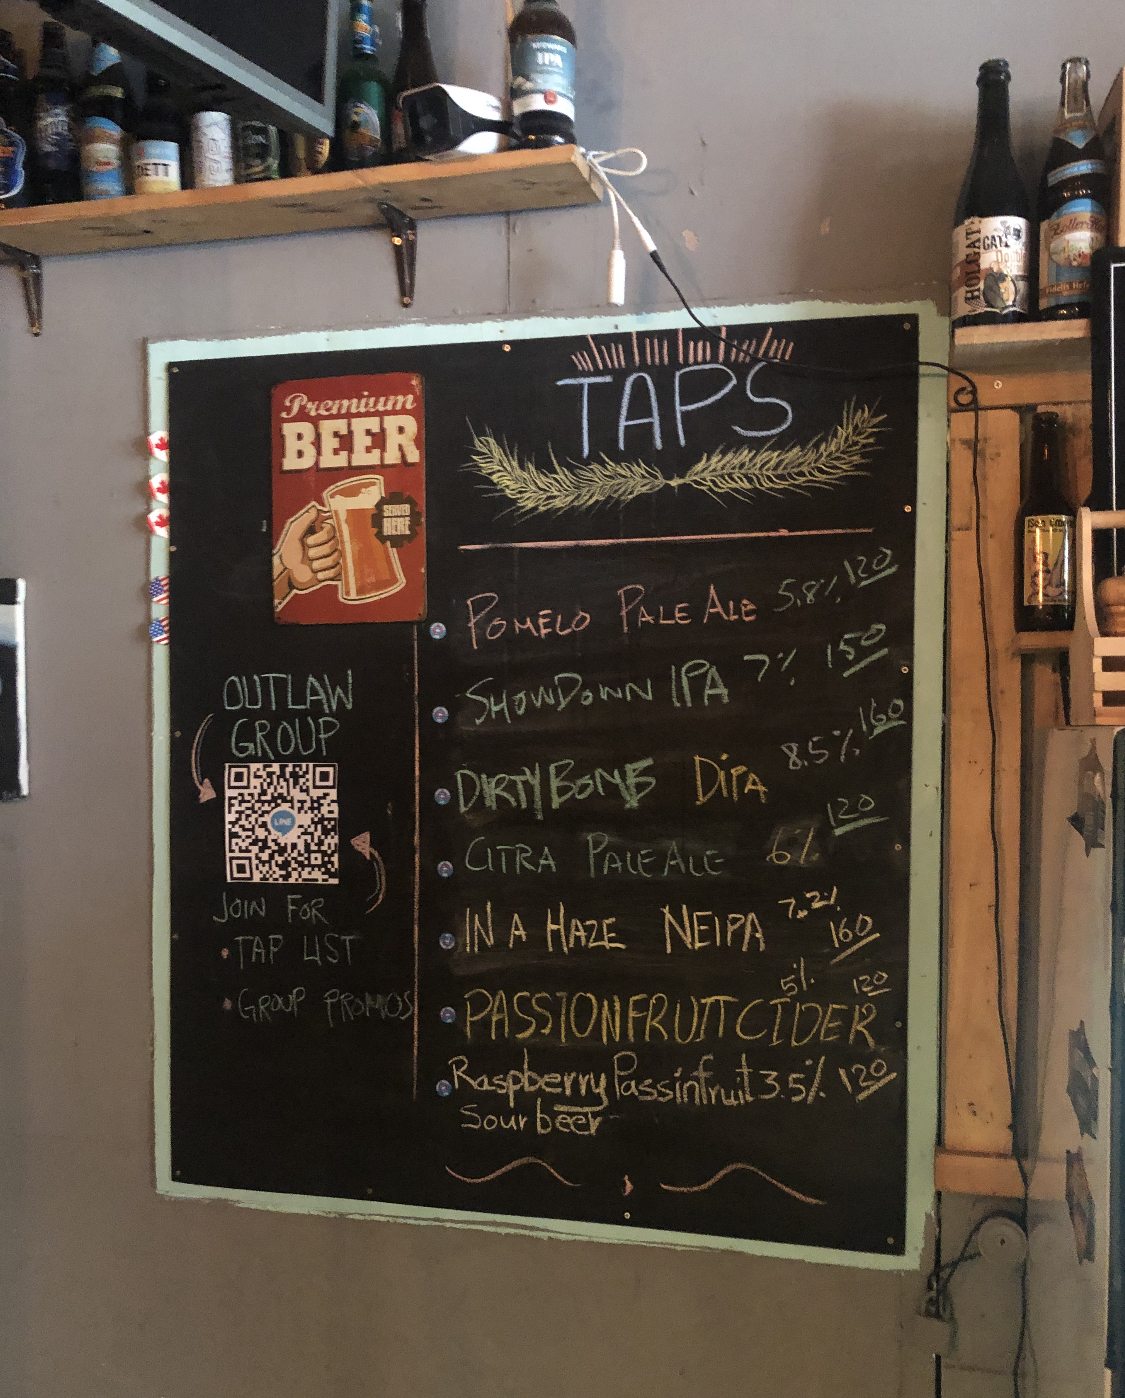 IPA
HOLGATE
Premium
BEER
SERVED
HERE
TAPS
POMELO PALE ALE 5.8% 120
SHOWDOWN IPA 7% 150
DIRTY BOMB DIPA 8.5% 160
CITRA PALE ALE 6% 120
IN A HAZE NEIPA 7.2% 160
PASSIONFRUIT CIDER 5% 120
Raspberry Passinfruit 3.5% 120
Sour beer
OUTLAW
GROUP
LINE
JOIN FOR
• TAP LIST
• GROUP PROMOS